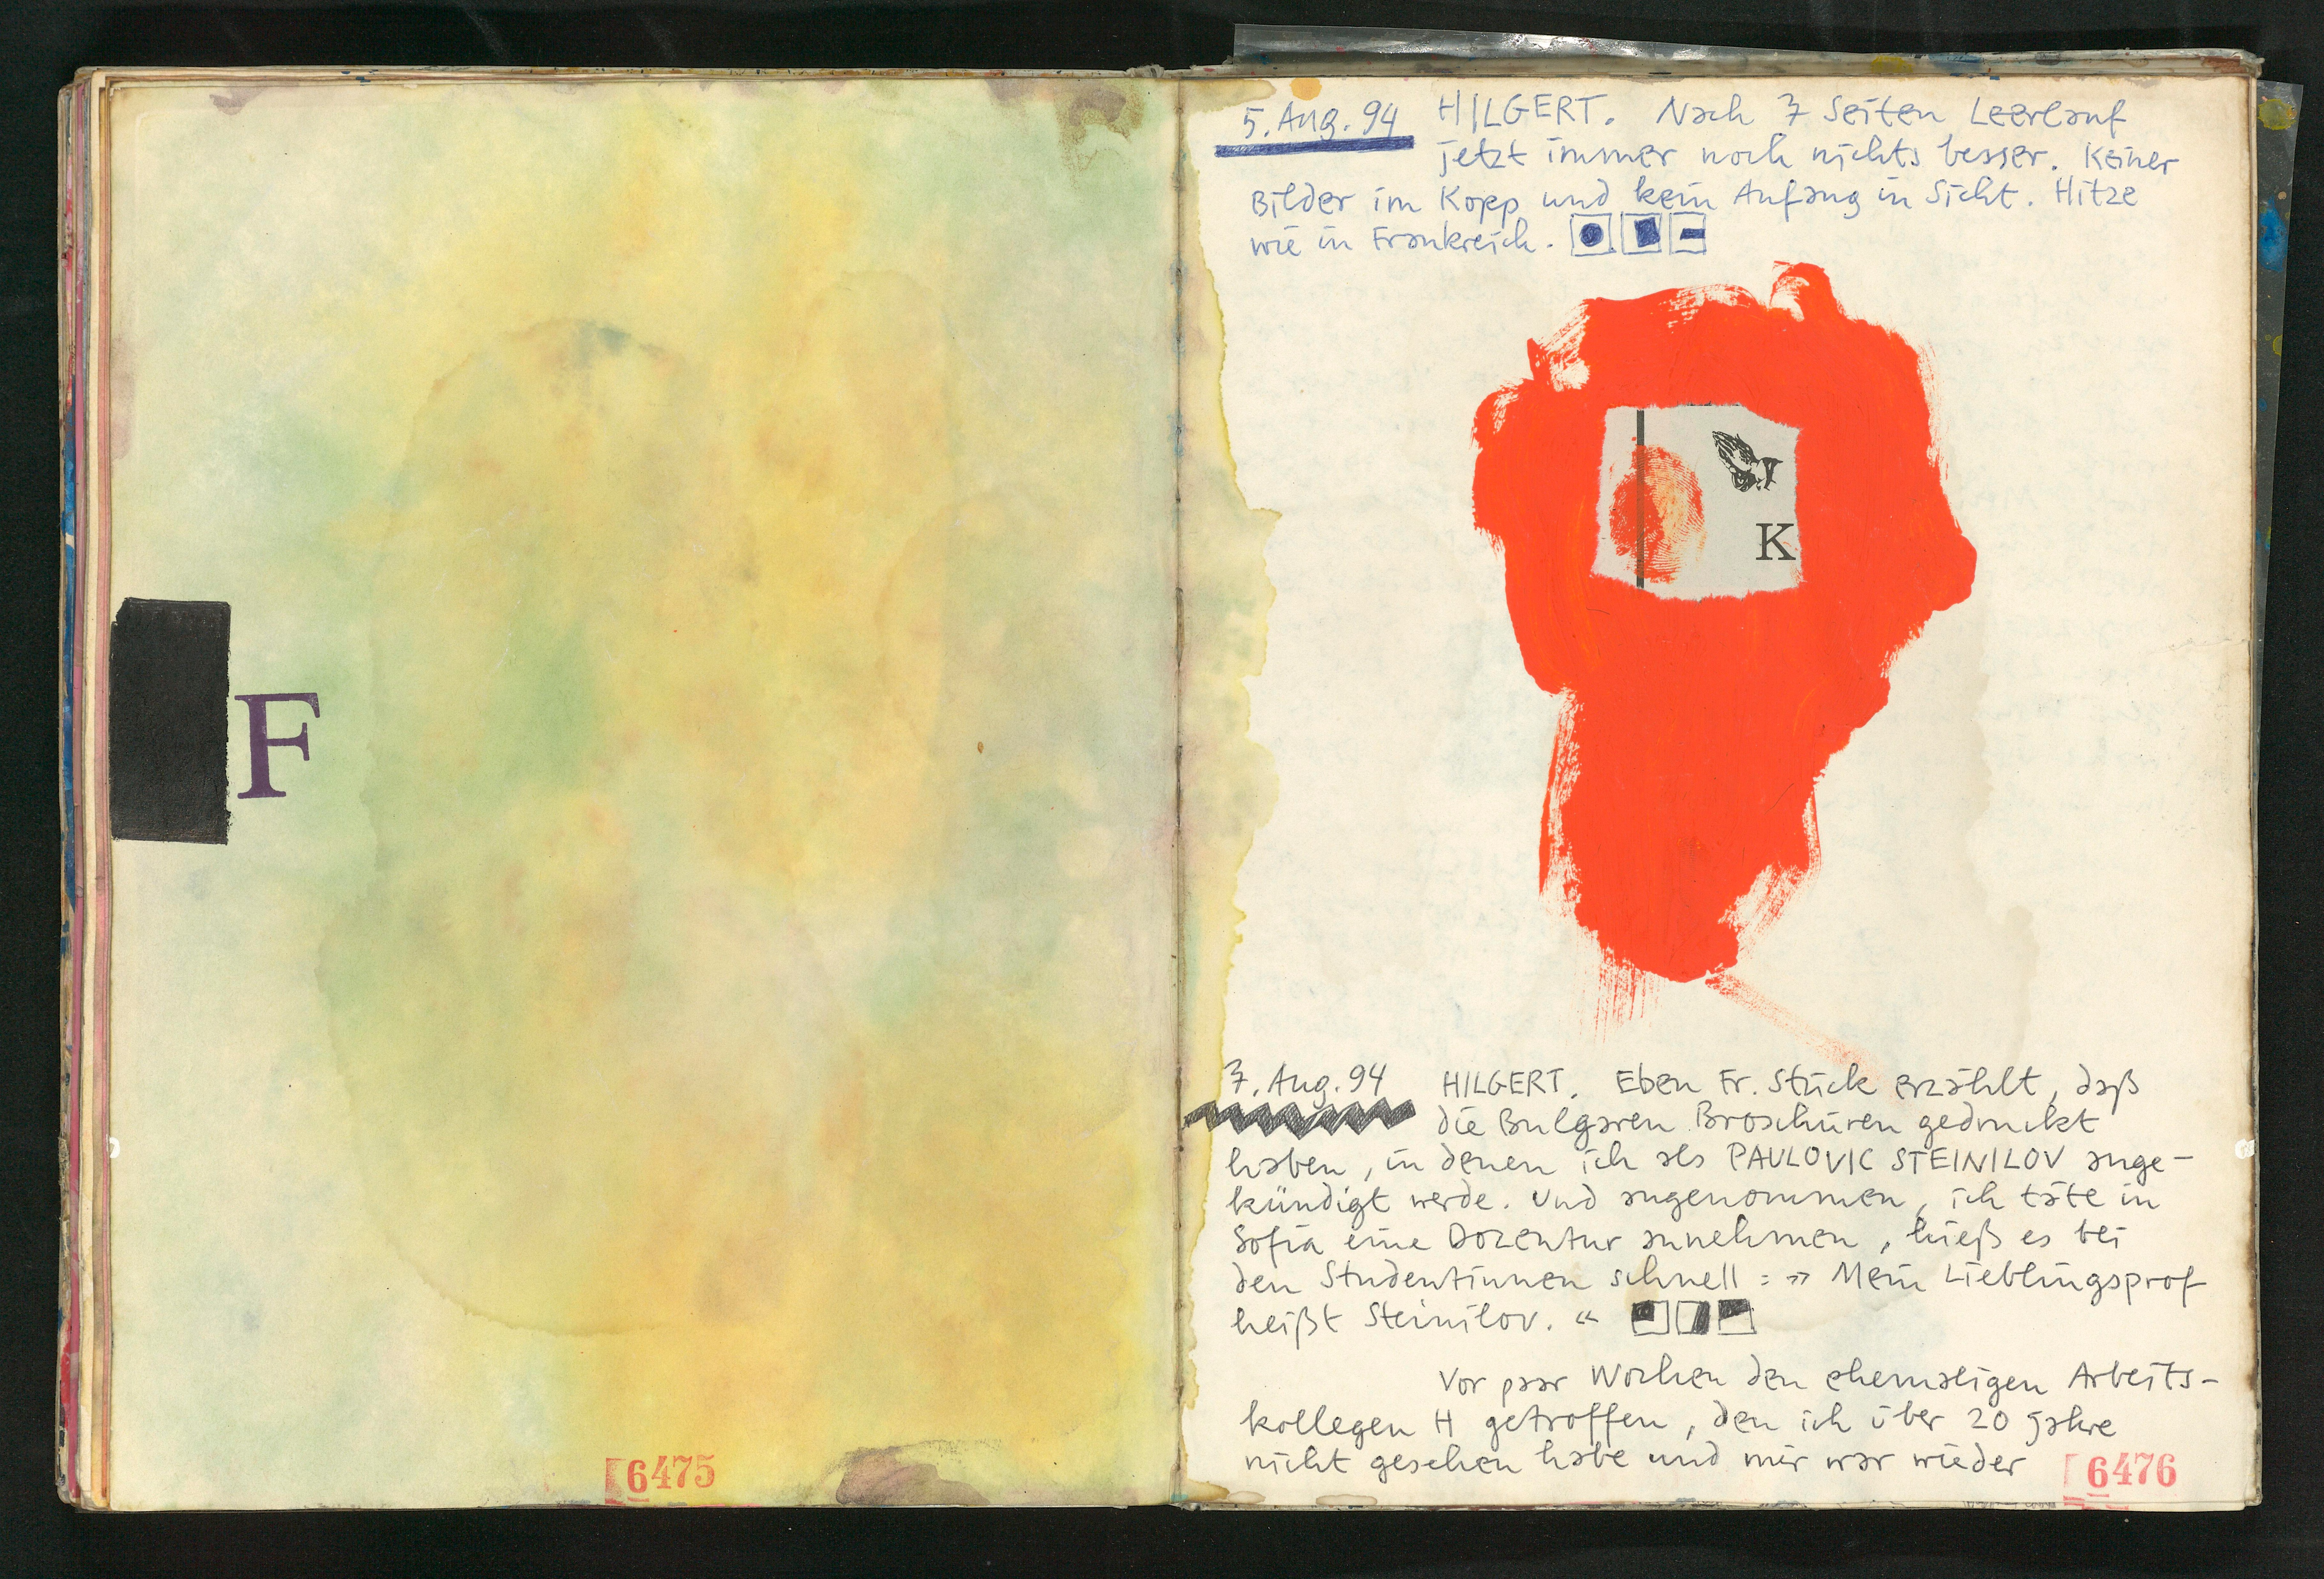 F
6475
5. Aug. 94 HILGERT. Nach 7 Seiten Leerlauf
jetzt immer noch nichts besser. Keiner
Bilder im Kopp und kein Anfang in Sicht. Hitze
wie in Frankreich.
K
7. Aug. 94 HILGERT. Eben Fr. Stück erzählt, daß
die Bulgaren Broschüren gedruckt
haben, in denen ich als PAVLOVIC STEINILOV ange-
kündigt werde. Und angenommen, ich täte in
Sofia eine Dozentur annehmen, hieß es bei
den Studentinnen schnell: » Mein Lieblingsprof
heißt Steinilov. «
Vor paar Wochen den ehemaligen Arbeits-
kollegen H getroffen, den ich über 20 Jahre
nicht gesehen habe und mir war wieder
6476